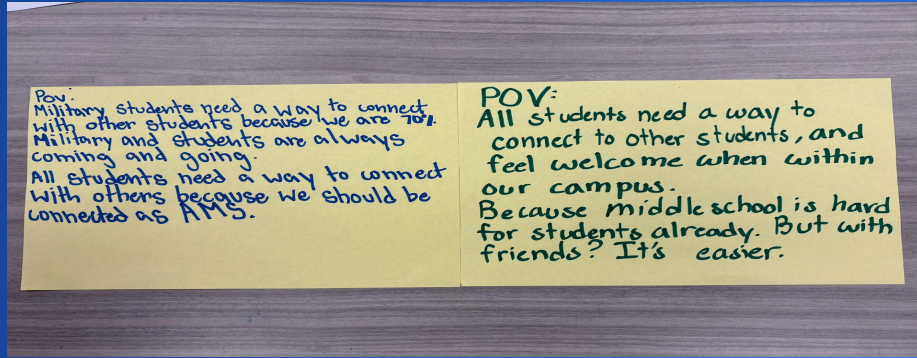 Pov:
Military students need a way to connect
with other students because we are 70%
Military and students are always
coming and going.
All students need a way to connect
with others because we should be
connected as AMS.
POV:
All students need a way to
connect to other students, and
feel welcome when within
our campus.
Because middle school is hard
for students already. But with
friends? It's easier.